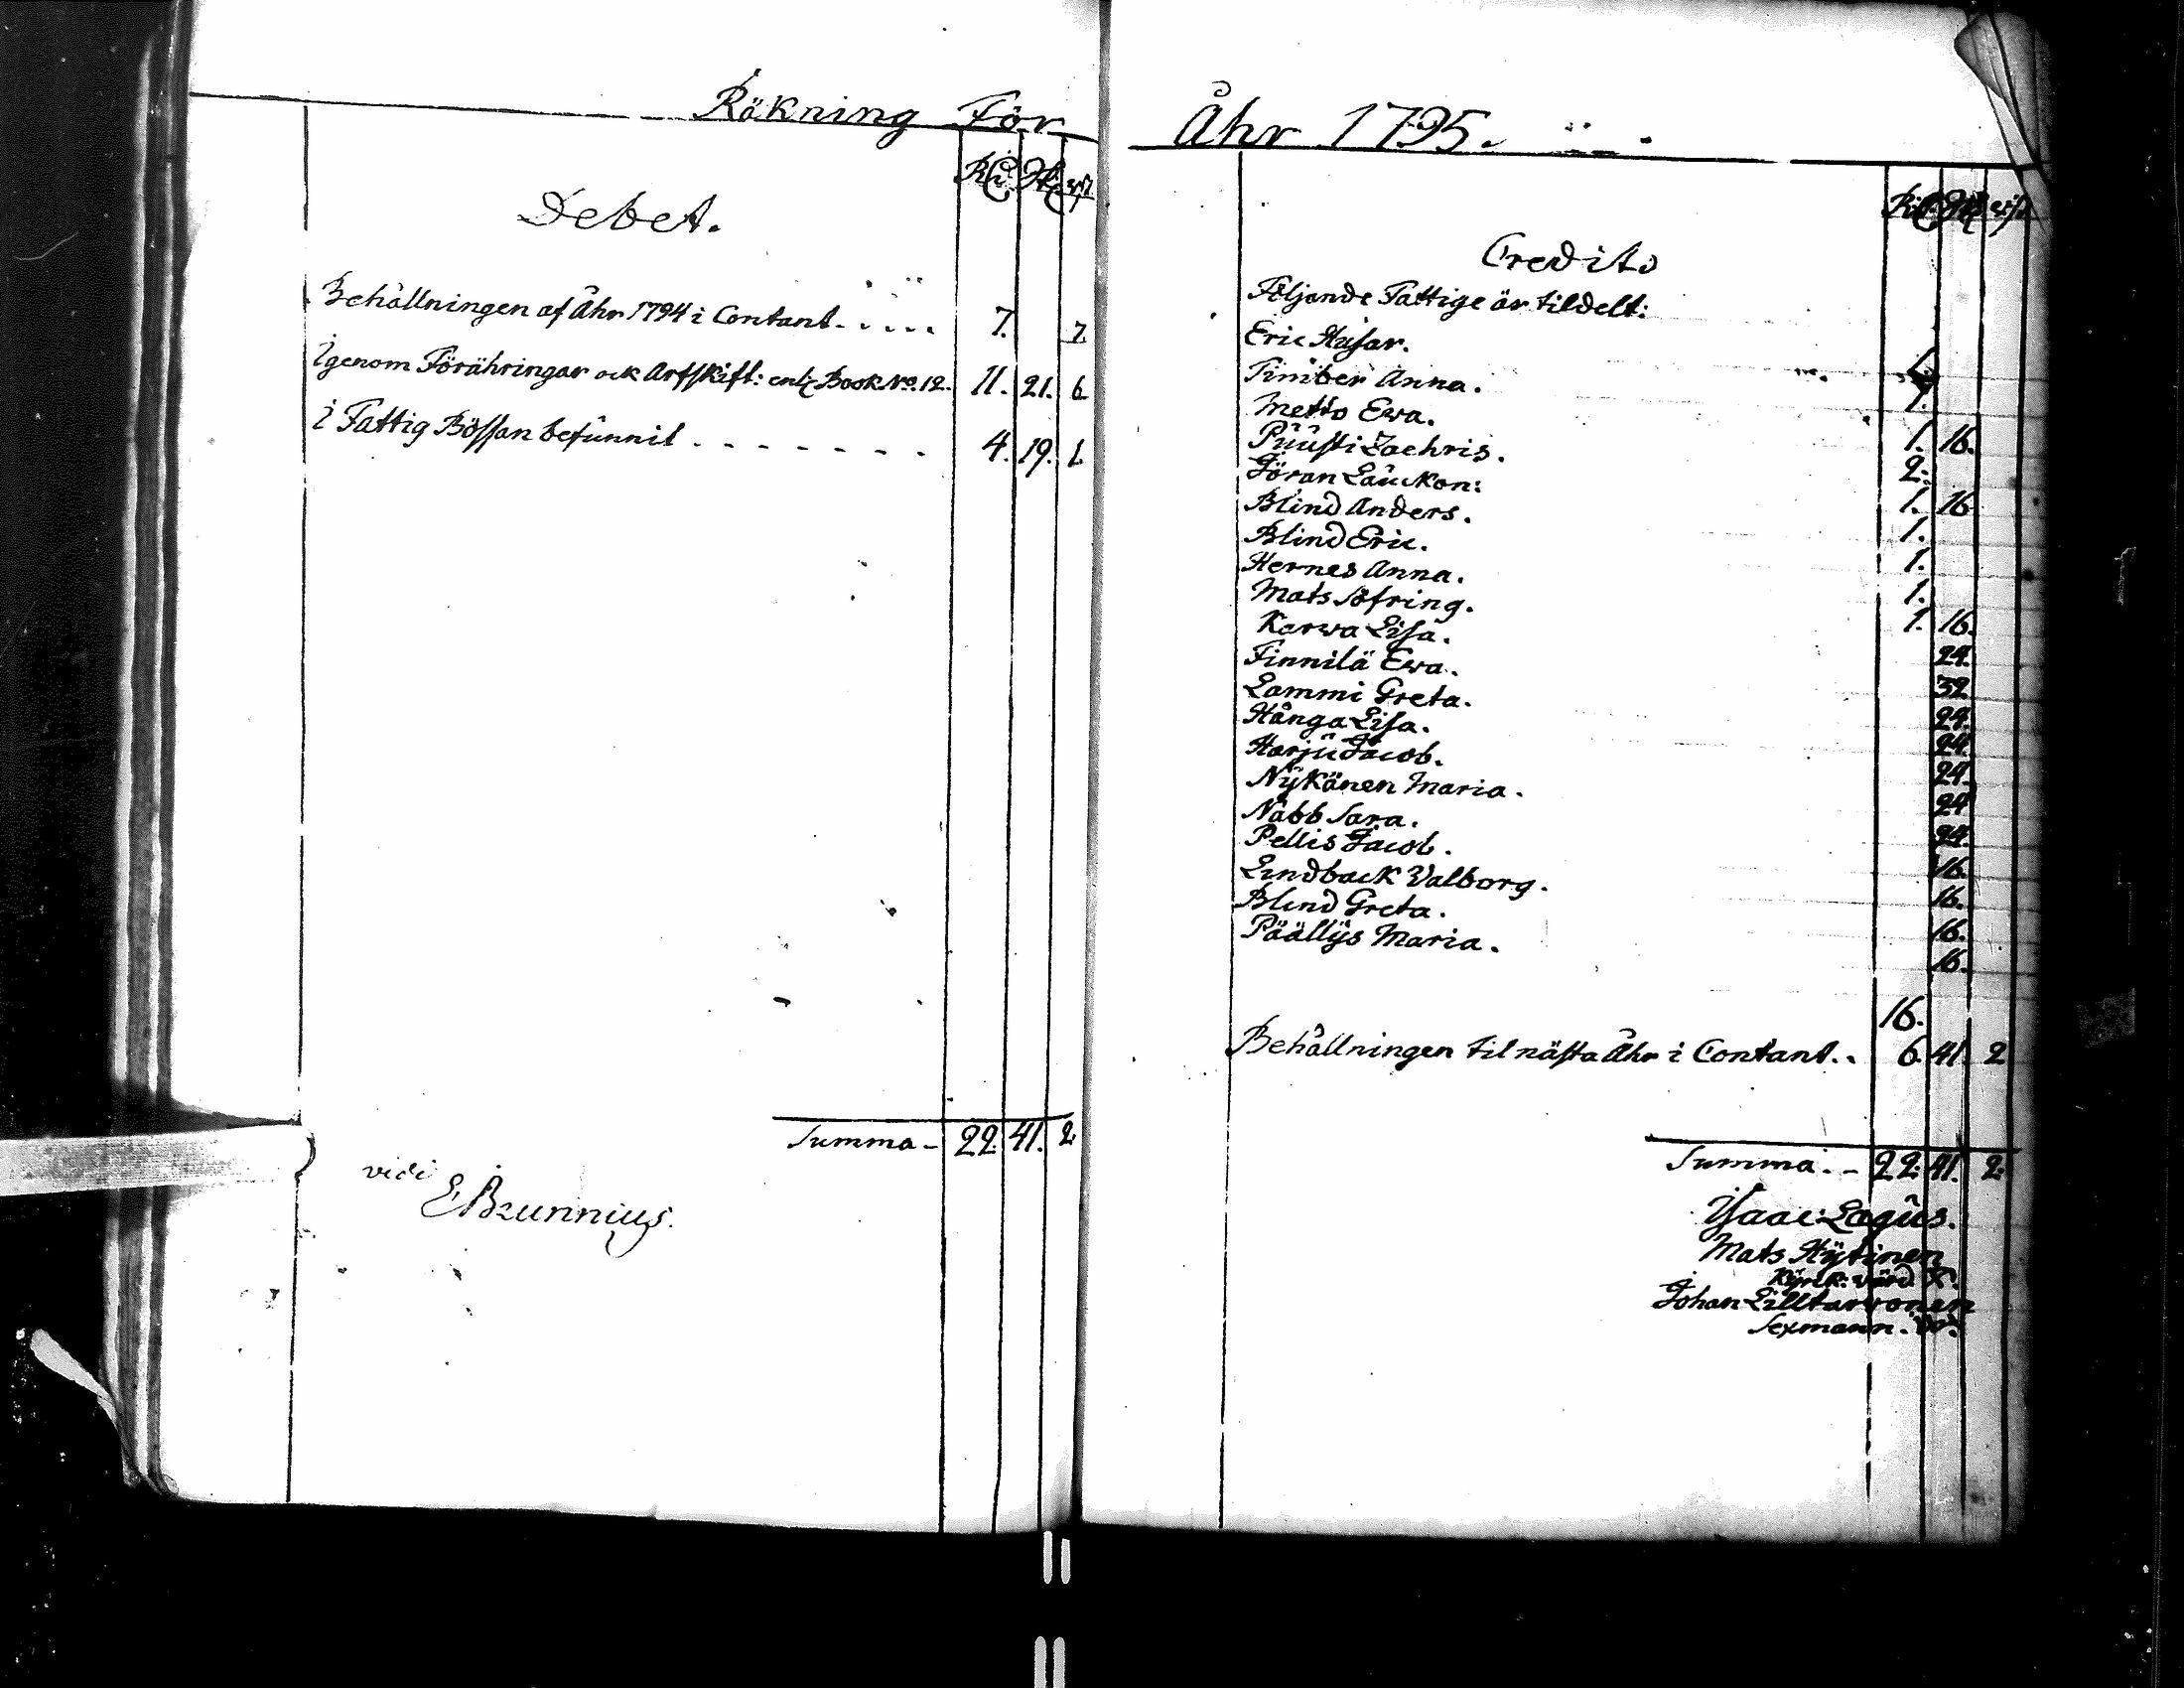 Räkning För
Debet.
Behållningen af Åhr 1794 i Contant. 7. 7.
igenom Förähringar ock Arfskift: enl: Book No. 12. 11. 21. 6
i Fattig Bössan befunnit 4. 19. 1.
Summa - 22. 41. 2.
vidi
E Brunnius.
Åhr 1795.
Credit.
Följande Fattige är tildelt:
Eric Husar. 1.
Timber Anna. 1.
Metto Ewa. 1. 16.
Püüsti Zachris. 2.
Jöran Lauckon: 1. 16
Blind Anders. 1.
Blind Eric. 1.
Hernes Anna. 1.
Mats Söfring. 1. 16.
Karwa Lisa. 24.
Finnilä Ewa. 32.
Lammi Greta. 24.
Hånga Lisa. 24.
Harju Jacob. 24.
Nÿkänen Maria. 24
Nabb Sara. 24.
Pellis Jacob. 16.
Lindback Valborg. 16.
Blind Greta. 16.
Päällÿs Maria. 16.
16.
Behållningen til nästa Åhr i Contant. 6. 41. 2
Summa. - 22. 41. 2.
Isaac Lagus.
Mats Hÿtinen
Kÿrck: värd
Johan Lilltarvonen
Sexmann.